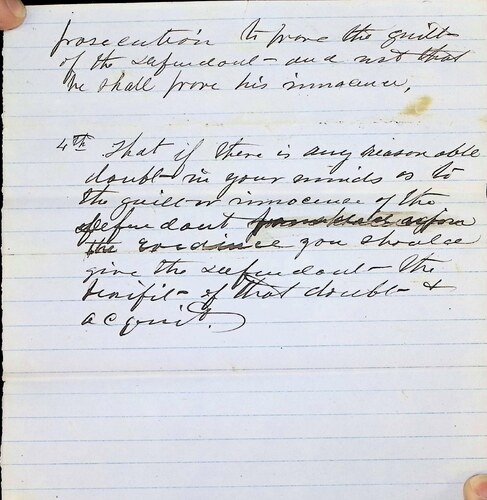 prosecution to prove the guilt
of the defendant - and not that
he shall prove his innocence,
4th That if there is any reasonable
doubt in your minds as to
the guilt or innocence of the
defendant
the evidence you should
give the defendant the
benifit of that doubt &
acquit.